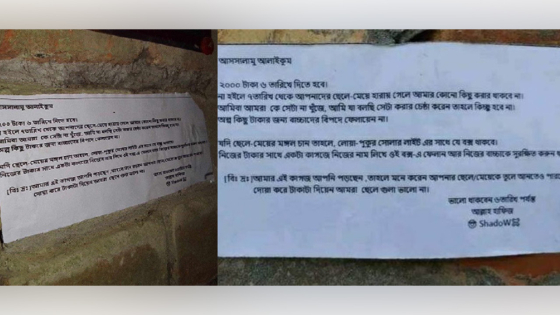 আসসালামু আলাইকুম
২০০০ টাকা ৬ তারিখে দিতে হবে।
না হইলে ৭তারিখ থেকে আপনাদের ছেলে-মেয়ে হারায় গেলে আমার কোনো কিছু করার থাকবে না।
আমিবা আমরা কে সেটা না খুঁজে, আমি যা বলছি সেটা করার চেষ্টা করেন তাহলে কিচ্ছু হবে না।
অল্প কিছু টাকার জন্য বাচ্চাদের বিপদে ফেলায়েন না।
যদি ছেলে-মেয়ের মঙ্গল চান তাহলে, লোয়া-পুকুর সোলার লাইট এর সাথে যে বক্স থাকবে।
নিজের টাকার সাথে একটা কাগজে নিজের নাম লিখে ওই বক্স-এ ফেলান আর নিজের বাচ্চাকে সুরক্ষিত করুন
[বিঃ দ্রঃ।আমার এই কাগজ আপনি পড়ছেন ,তাহলে মনে করেন আপনার ছেলে/মেয়েকে তুলে আনতেও
দোয়া করে টাকাটা দিয়েন আমরা ছেলে গুলা ভালো না।
ভালো থাকবেন ৬তারিখ পর্যন্ত
আল্লাহ হাফিজ
😎 ShadoW